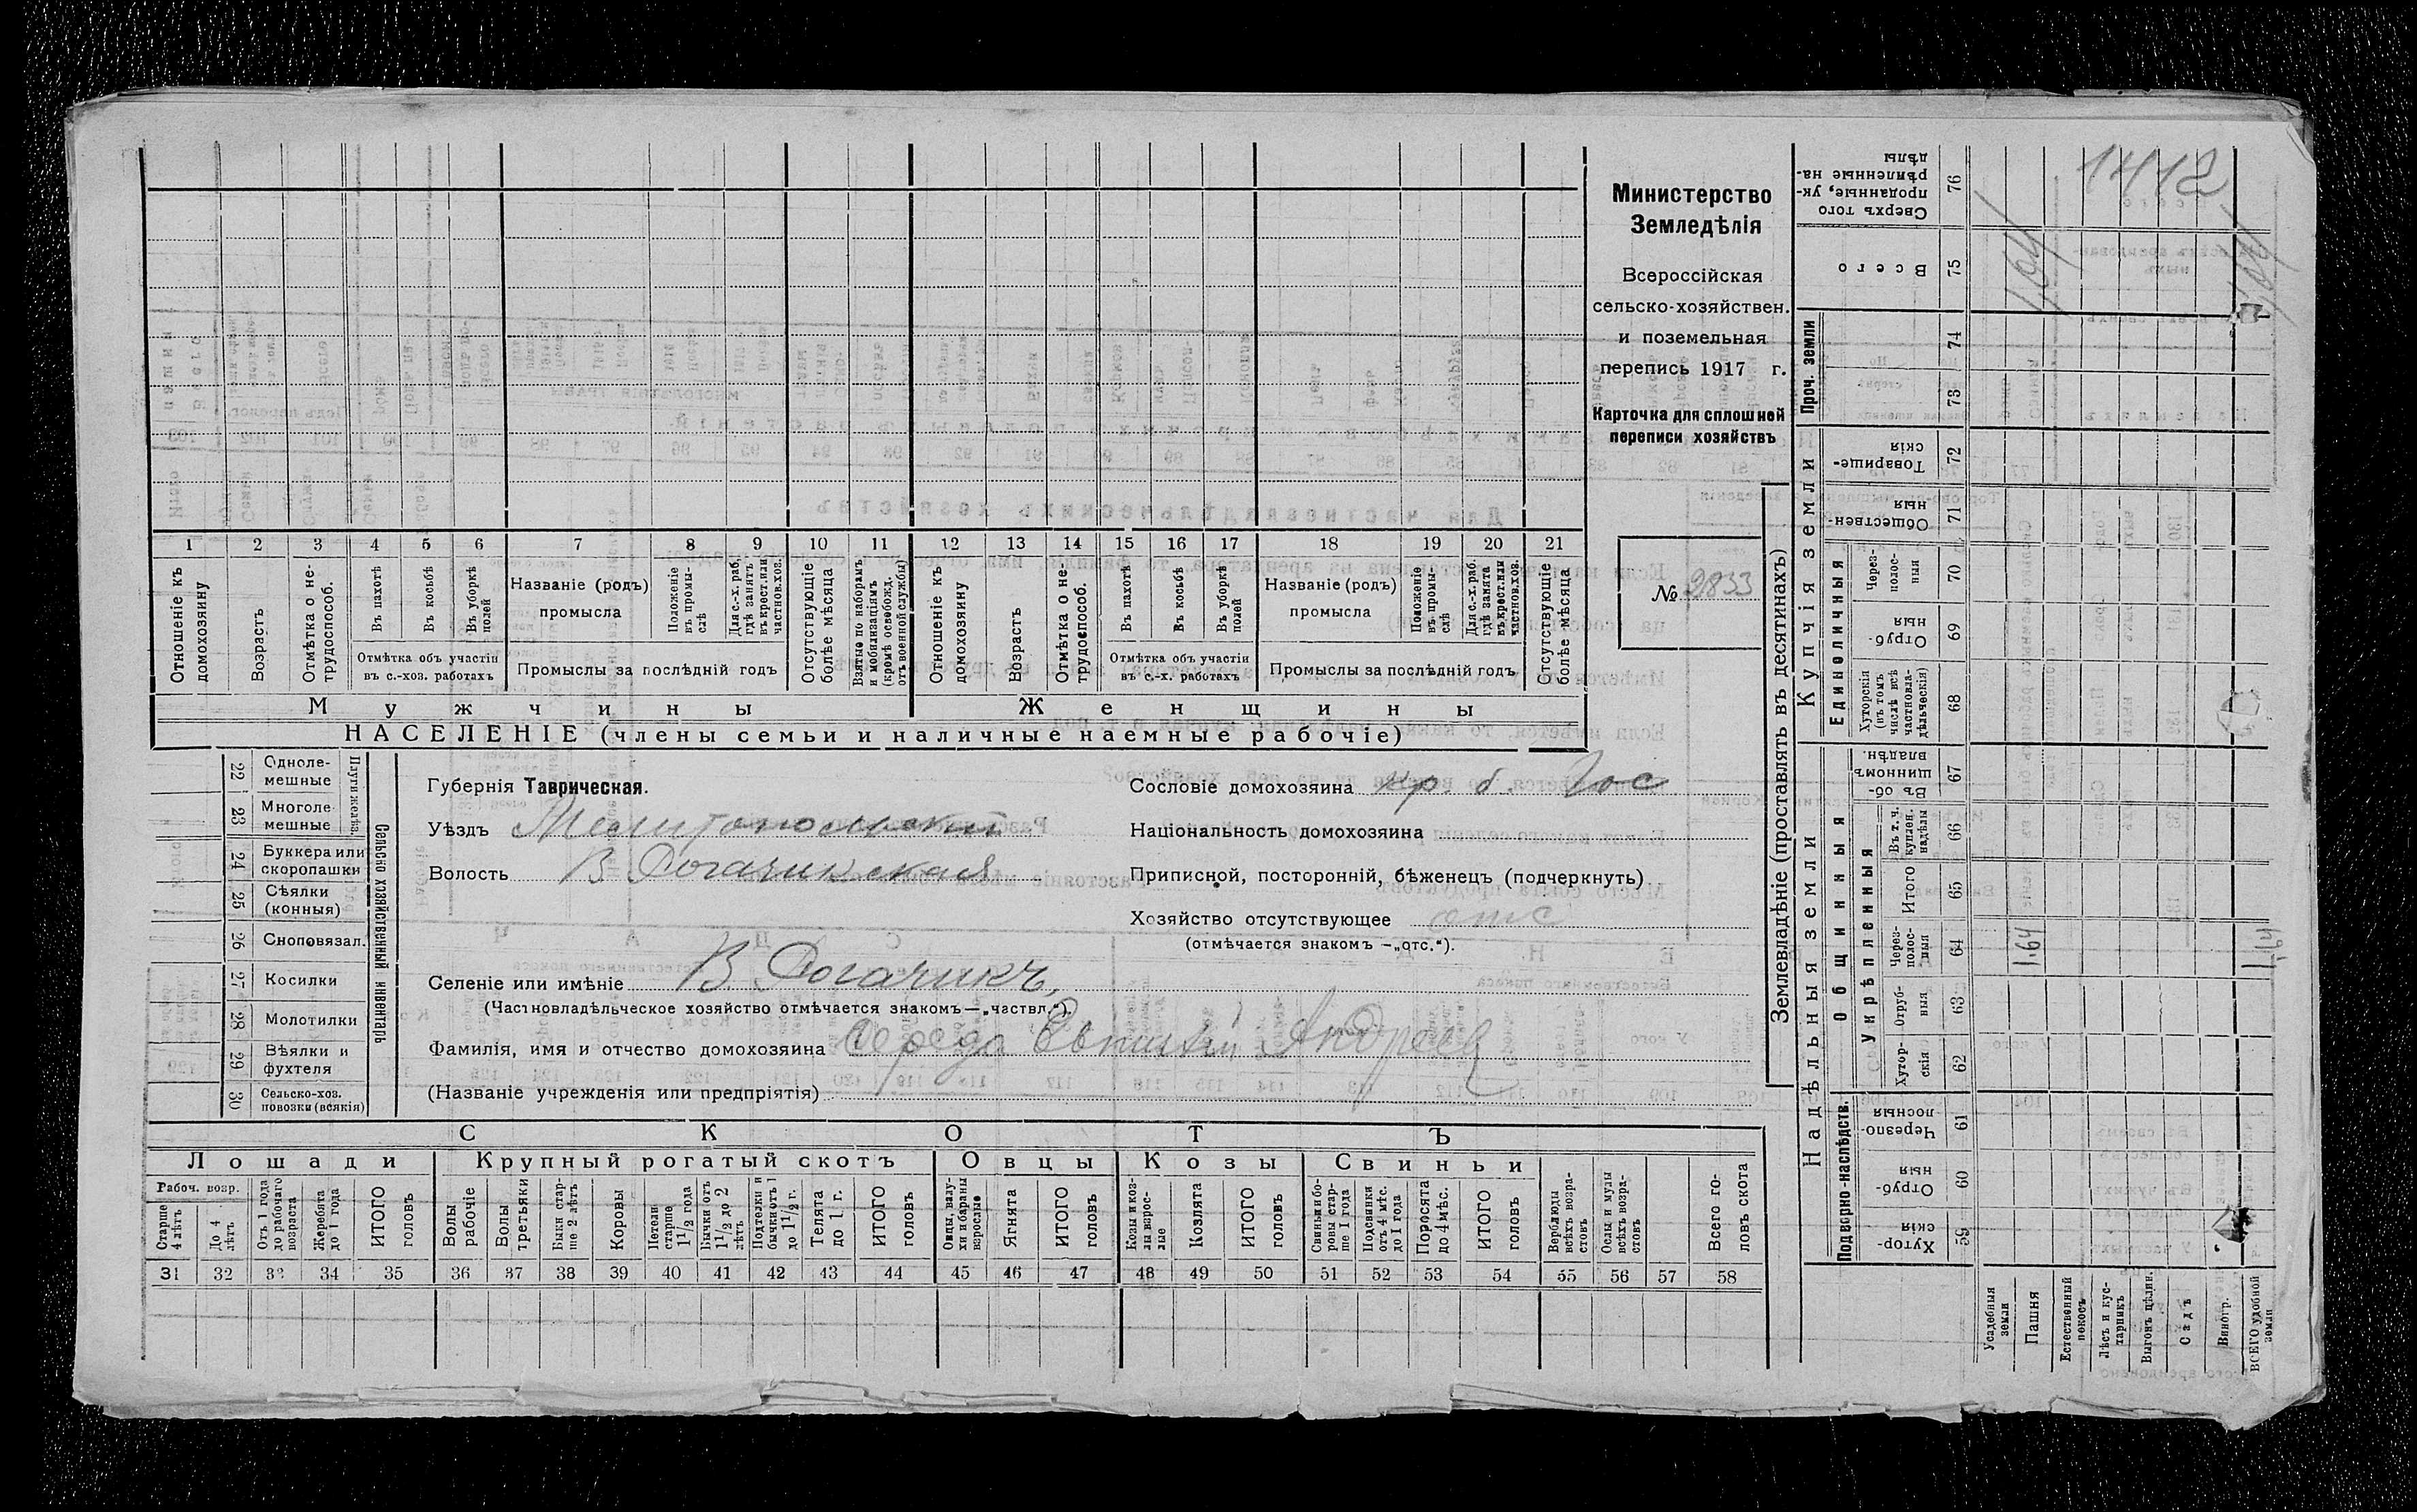 Министерство
Земледѣлія
Всероссійская
сельско-хозяйствен.
и поземельная
перепись 1917 г.
Карточка для сплошней
переписи хозяйствъ
№ 2833
1 2 3 4 5 6 7 8 9 10 11 12 13 14 15 16 17 18 19 20 21
Отношеніе къ домохозяину
Возрастъ
Отмѣтка о не-трудоспособ.
Въ пахотѣ
Въ косьбѣ
Въ уборкѣ полей
Отмѣтка объ участіи въ с.-хоз. работахъ
Названіе (родъ) промысла
Положеніе въ промы-слѣ
Для с.-х. раб. гдѣ занятъ въ крест. или частнов. хоз.
Промыслы за послѣдній годъ
Отсутствующіе болѣе мѣсяца
Взятые по наборамъ и мобилизаціямъ (кромѣ освобожд. отъ военной службы)
Отношеніе къ домохозяину
Возрастъ
Отмѣтка о не-трудоспособ.
Въ пахотѣ
Въ косьбѣ
Въ уборкѣ полей
Отмѣтка объ участіи въ с.-х. работахъ
Названіе (родъ) промысла
Положеніе въ промы-слѣ
Для с.-х. раб. гдѣ занята въ крест. или частнов. хоз.
Промыслы за послѣдній годъ
Отсутствующіе болѣе мѣсяца
Мужчины Женщины
НАСЕЛЕНІЕ (члены семьи и наличные наемные рабочіе)
22 Одноле-мешные
23 Многоле-мешные
Плуги желѣз.
24 Буккера или скоропашки
25 Сѣялки (конныя)
26 Сноповязал.
27 Косилки
28 Молотилки
29 Вѣялки и фухтеля
30 Сельско-хоз. повозки (всякія)
Сельско хозяйственный инвентарь
Губернія Таврическая.
Уѣздъ Мелитопольскій
Волость В Рогачикская
Сословіе домохозяина кр. б. Гос
Національность домохозяина
Приписной, посторонній, бѣженецъ (подчеркнуть)
Хозяйство отсутствующее отс
(отмѣчается знакомъ —„отс.“).
Селеніе или имѣніе В. Рогачикъ
(Частновладѣльческое хозяйство отмѣчается знакомъ—„частвл.“).
Фамилія, имя и отчество домохозяина Середа Евтихій Андреев
(Названіе учрежденія или предпріятія)
СКОТЪ
Лошади Крупный рогатый скотъ Овцы Козы Свиньи
Рабоч. возр.
Старше 4 лѣтъ
До 4 лѣтъ
Отъ 1 года до рабочаго возраста
Жеребята до 1 года
ИТОГО головъ
Волы рабочіе
Волы третьяки
Быки стар-ше 2 лѣтъ
Коровы
Нетели старше 1 1/2 года
Бычки отъ 1 1/2 до 2 лѣтъ
Подтелки и бычки отъ 1 до 1 1/2 г.
Телята до 1 г.
ИТОГО головъ
Овцы, валу-хи и бараны взрослые
Ягнята
ИТОГО головъ
Козы и коз-лы взрос-лые
Козлята
ИТОГО головъ
Свиньи и бо-ровы стар-ше 1 года
Подсвинки отъ 4 мѣс. до 1 года
Поросята до 4 мѣс.
ИТОГО головъ
Верблюды всѣхъ возра-стовъ
Ослы и мулы всѣхъ возра-стовъ
Всего го-ловъ скота
31 32 33 34 35 36 37 38 39 40 41 42 43 44 45 46 47 48 49 50 51 52 53 54 55 56 57 58
Землевладѣніе (проставлять въ десятинахъ)
Надѣльныя земли
Купчія земли
Проч. земли
Подворно-наслѣдств.
Общинныя
Укрѣпленныя
Единоличныя
Хутор-скія 59
Отруб-ныя 60
Черезпо-лосныя 61
Хутор-скія 62
Отруб-ныя 63
Через-полос-ныя 64
Итого 65
Въ т. ч. куплен. надѣлы 66
Въ об-щинномъ владѣн. 67
Хуторскія (въ томъ числѣ всѣ частновла-дѣльческія) 68
Отруб-ныя 69
Через-полос-ныя 70
Обществен-ныя 71
Товарище-скія 72
73
74
Всего 75
Сверхъ того проданные, ук-рѣпленные на-дѣлы 76
Усадебныя земли
Пашня
Естественный покосъ
Лѣсъ и кус-тарникъ
Выгонъ цѣлин.
Садъ
Виногр.
ВСЕГО удобной земли
1.64
1,64
1,64
1,64
1412